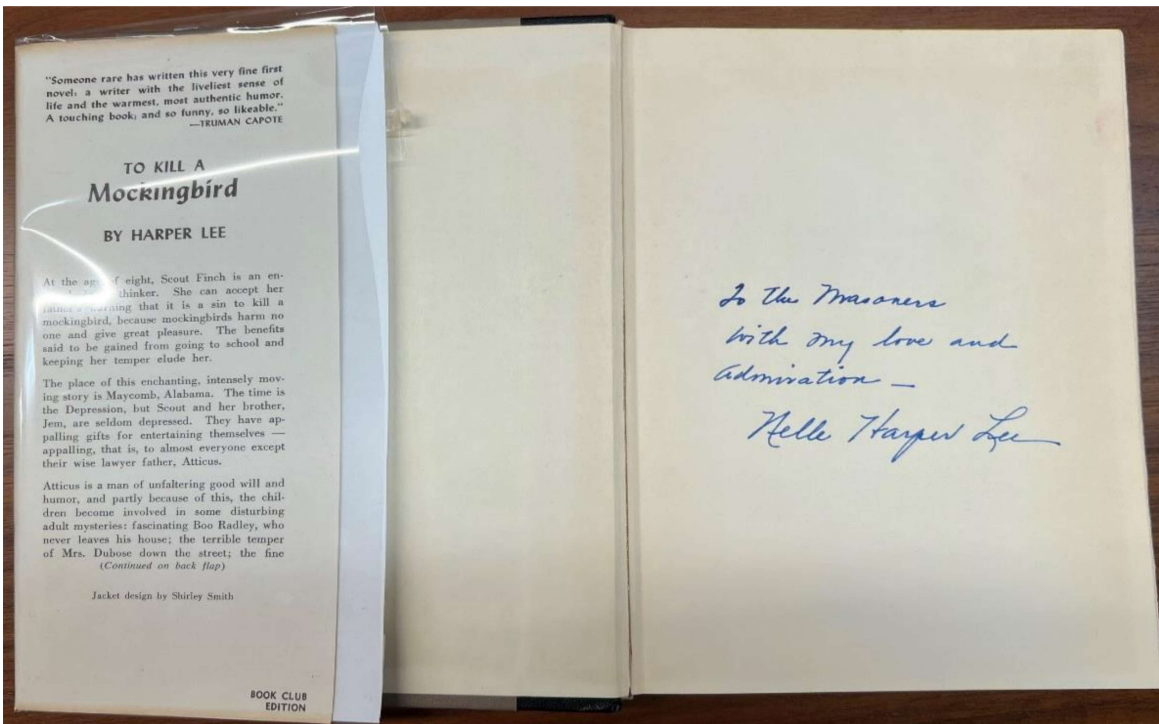 "Someone rare has written this very fine first
novel: a writer with the liveliest sense of
life and the warmest, most authentic humor.
A touching book; and so funny, so likeable."
—TRUMAN CAPOTE
TO KILL A
Mockingbird
BY HARPER LEE
At the age of eight, Scout Finch is an en-
thinker. She can accept her
father's warning that it is a sin to kill a
mockingbird, because mockingbirds harm no
one and give great pleasure. The benefits
said to be gained from going to school and
keeping her temper elude her.
The place of this enchanting, intensely mov-
ing story is Maycomb, Alabama. The time is
the Depression, but Scout and her brother,
Jem, are seldom depressed. They have ap-
palling gifts for entertaining themselves —
appalling, that is, to almost everyone except
their wise lawyer father, Atticus.
Atticus is a man of unfaltering good will and
humor, and partly because of this, the chil-
dren become involved in some disturbing
adult mysteries: fascinating Boo Radley, who
never leaves his house; the terrible temper
of Mrs. Dubose down the street; the fine
(Continued on back flap)
Jacket design by Shirley Smith
BOOK CLUB
EDITION
To the Masoners
with my love and
admiration —
Nelle Harper Lee